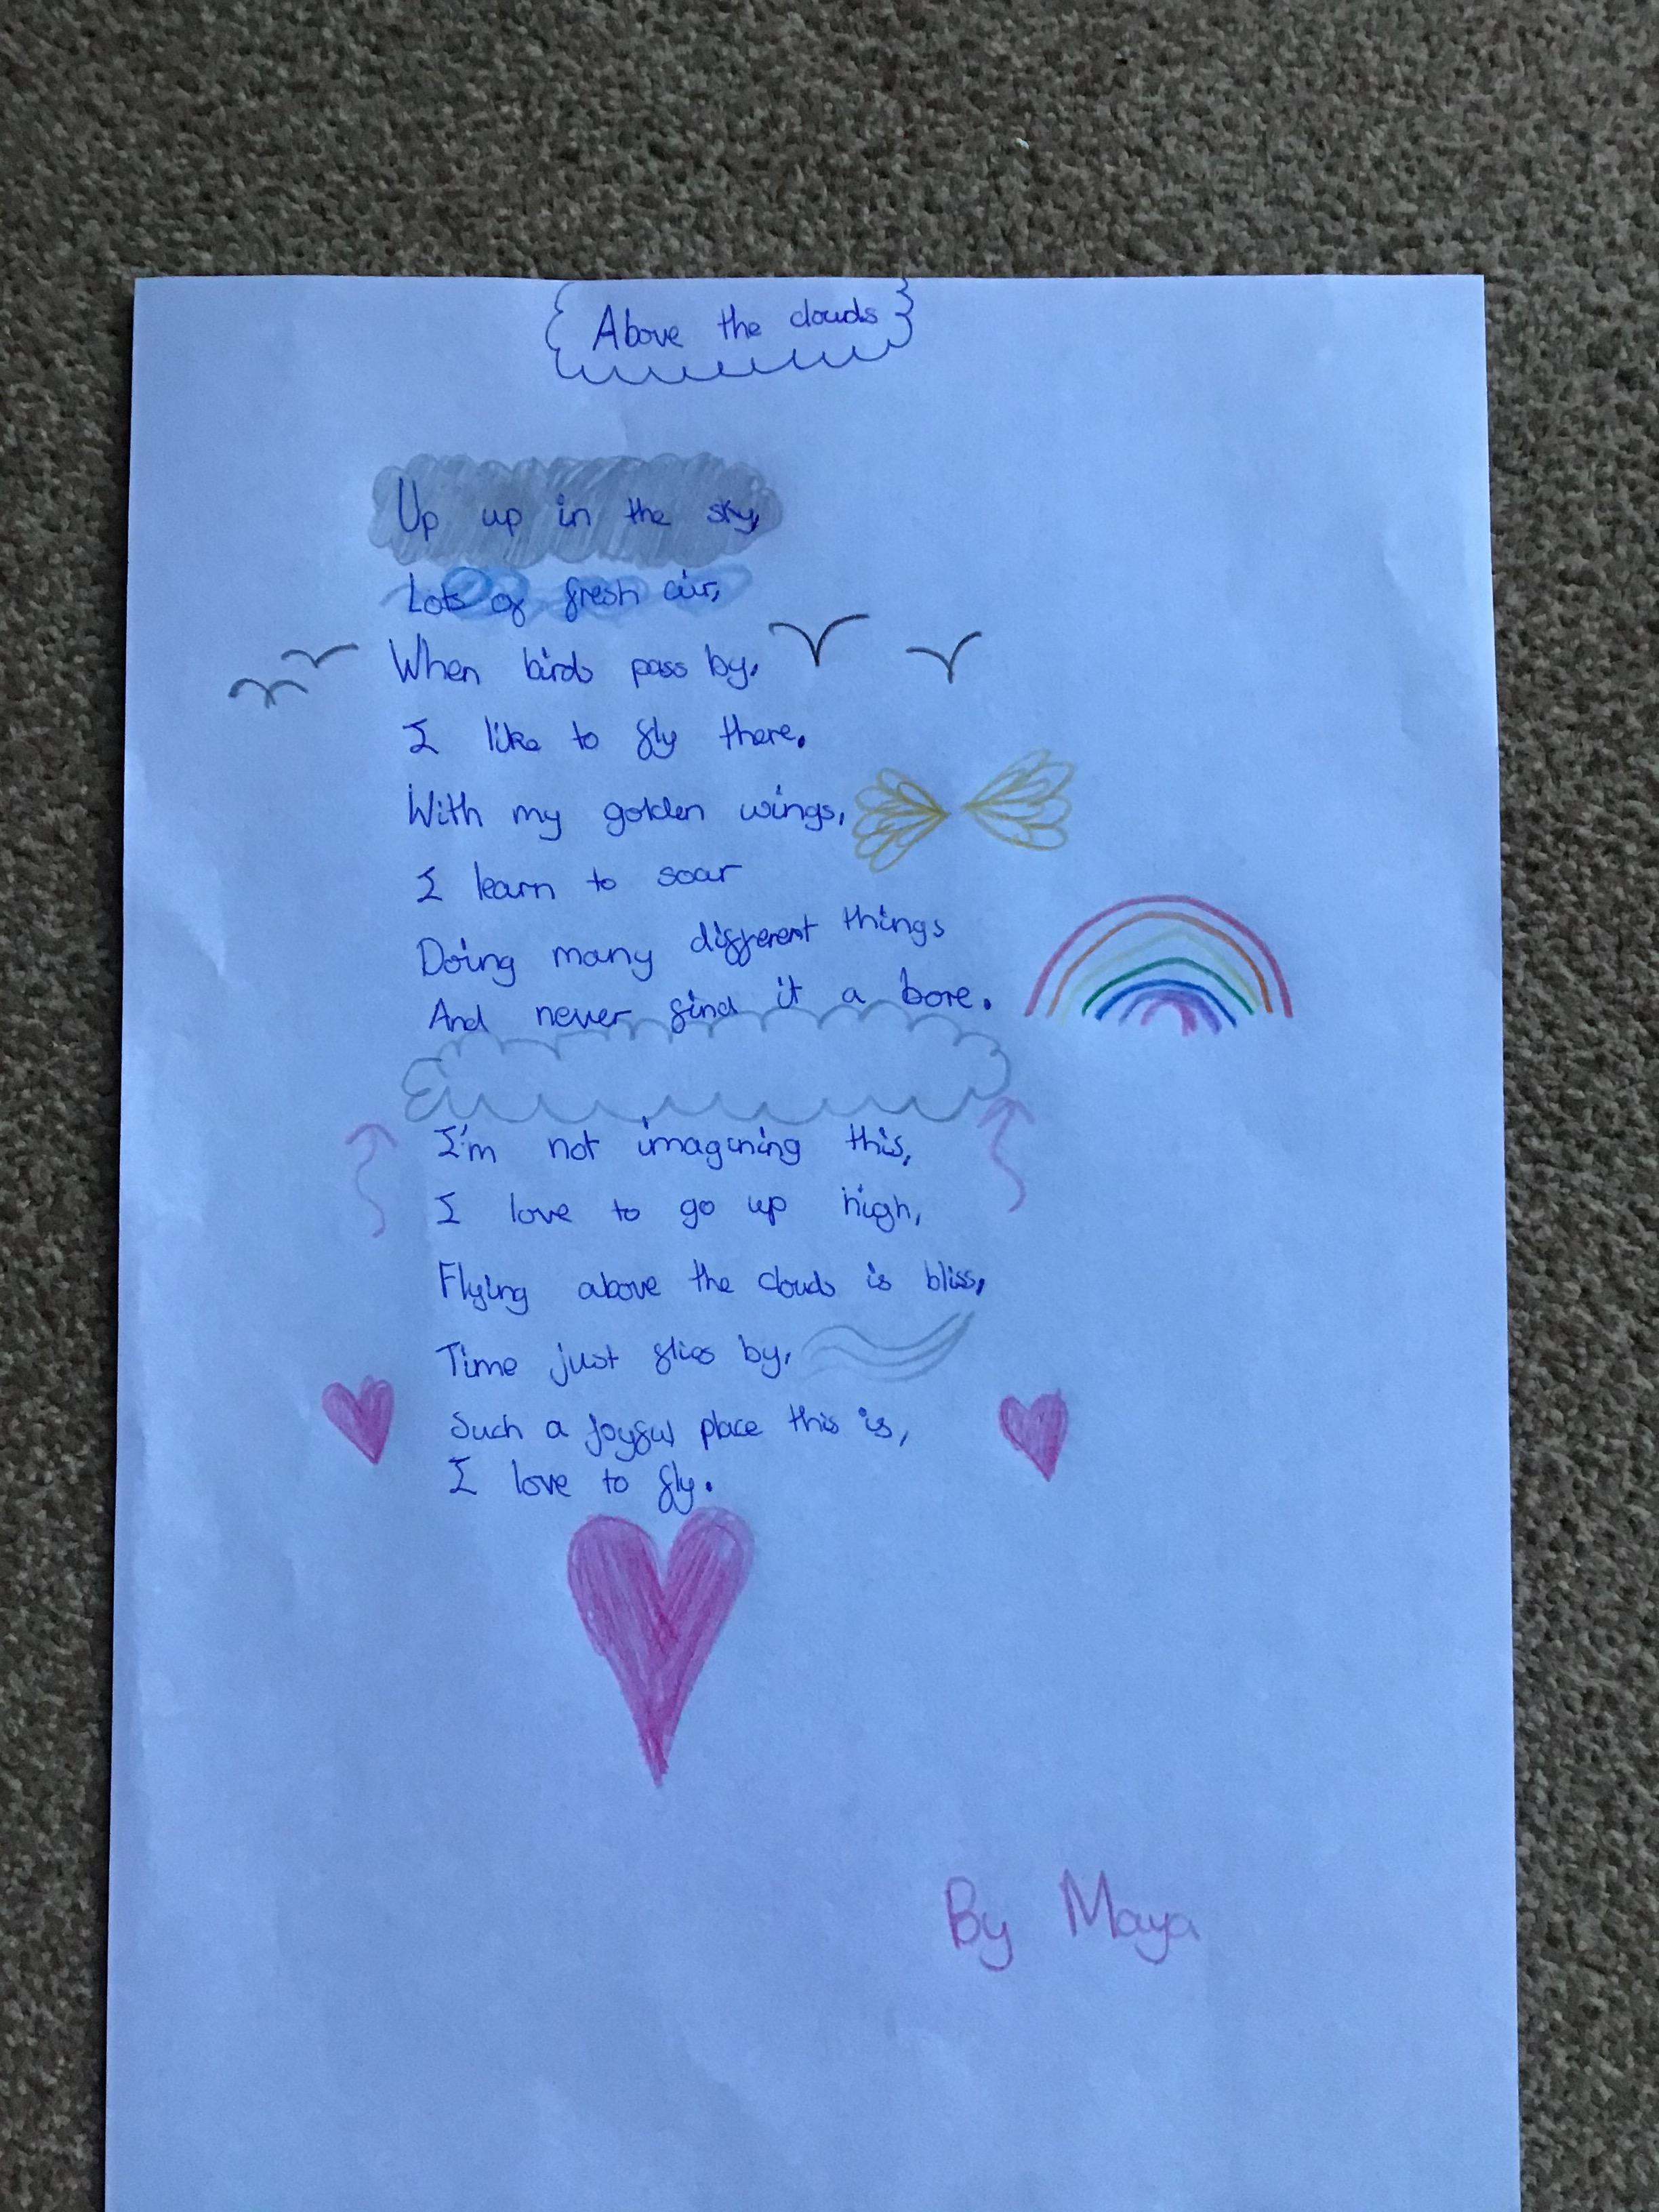 Above the clouds
Up up in the sky,
Lots of fresh air,
When birds pass by,
I like to fly there.
With my golden wings,
I learn to soar
Doing many different things
And never find it a bore.
I'm not imagining this,
I love to go up high,
Flying above the clouds is bliss,
Time just flies by,
Such a joyful place this is,
I love to fly.
By Maya